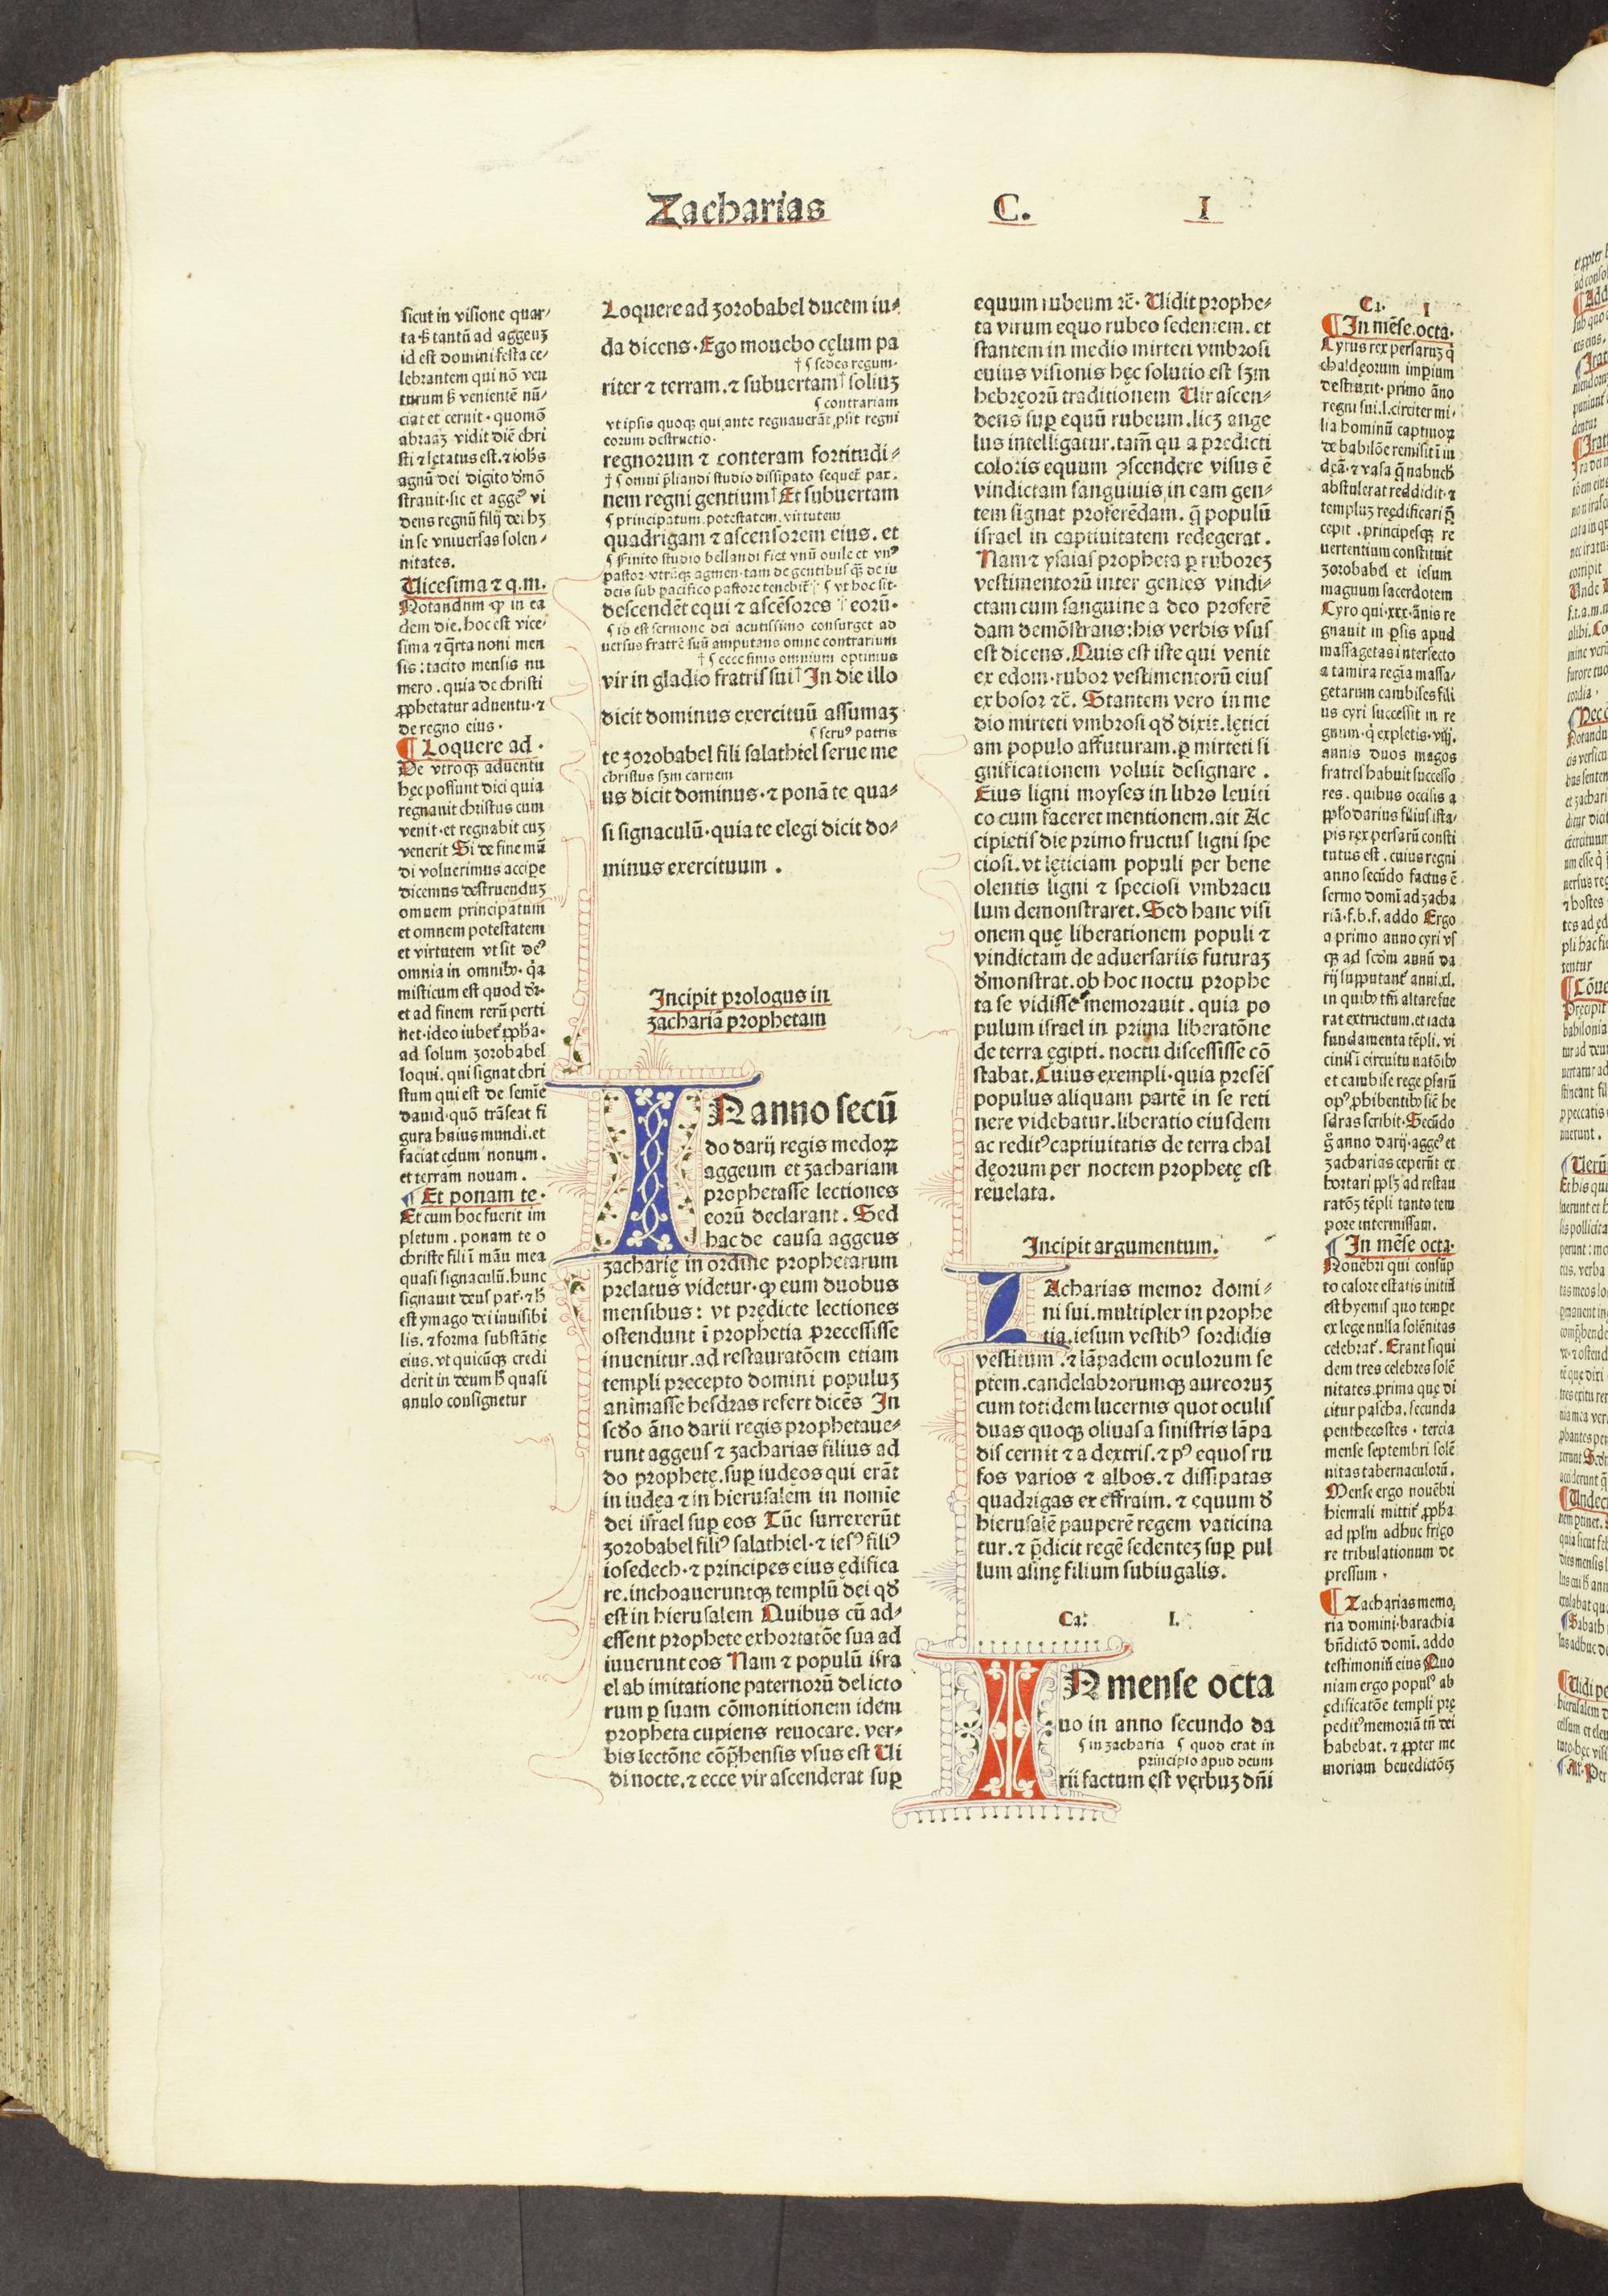 Zacharias C. I
sicut in visione quar⸗
ta ꝫ tantū ad aggeuꝫ
id est domini festa ce⸗
lebrantem qui nō ven
turum ꝫ venientē nū⸗
ciat et cernit. quomō
abraaꝫ vidit diē chri
sti ⁊ lętatus est. ⁊ iohs
agnū dei digito dmō
stravit. sic et aggeꝰ vi
dens regnū filij dei hꝫ
in se vniuersas solen⸗
nitates.
Uicesima ⁊ q. m.
Notandum ꝙ in ea
dem die. hoc est vice⸗
sima ⁊ q̄rta noni men
sis: tacito mensis nu
mero. quia de christi
ꝓphetatur aduentu. ⁊
de regno eius.
¶ Loquere ad.
De vtroqꝫ aduentū
hęc possunt dici quia
regnauit christus cum
venit. et regnabit cuꝫ
venerit Si de fine mū
di voluerimus accipe
dicemus destruenduꝫ
omnem principatum
et omnem potestatem
et virtutem vt sit deꝰ
omnia in omnibꝰ. q̄a
misticum est quod dr.
et ad finem rerū perti
net. ideo iubet ꝓpha.
ad solum zorobabel
loqui. qui signat chri
stum qui est de semīe
dauid. quō trāseat fi
gura huius mundi. et
faciat cęlum nonum.
et terram nouam.
¶ Et ponam te.
Et cum hoc fuerit im
pletum. ponam te o
christe fili ī manu mea
quasi signaculū. hunc
signauit deus pat̄. ⁊ h̄
est ymago dei inuisibi
lis. ⁊ forma substātie
eius. vt quicūqꝫ credi
derit in deum h̄ quasi
anulo consignetur
Loquere ad zorobabel ducem iu⸗
da dicens. Ego mouebo cęlum pa
† ¶ sedes regum.
riter ⁊ terram. ⁊ subuertam† soliuꝫ
¶ contrariam
vt ipsis quoqꝫ qui ante regnauerāt ꝓsit regni
eorum destructio.
regnorum ⁊ conteram fortitudi⸗
† ¶ omni p̄liandi studio dissipato sequet̄ pax.
nem regni gentium† Et subuertam
¶ principatum. potestatem. virtutem
quadrigam ⁊ ascensorem eius. et
¶ Finito studio bellandi fiet vnū ouile et vnꝰ
pastor. vtrūqꝫ agmen. tam de gentibus q̄ꝫ de iu
deis sub pacifico pastore tenebit̄ † ¶ vt hoc sit.
descendēt equi ⁊ ascēsores † eorū.
¶ id est sermone dei acutissimo consurget ad
uersus fratrē suū amputans omne contrarium
† ¶ ecce finis omnium optimus
vir in gladio fratris sui† In die illo
dicit dominus exercituū assumaꝫ
¶ seruꝰ patris
te zorobabel fili salathiel serue me
christus scꝫm carnem
us dicit dominus. ⁊ ponā te qua⸗
si signaculū. quia te elegi dicit do⸗
minus exercituum.
Incipit prologus in
zachariā prophetam
IN anno secū
do darij regis medoꝝ
aggeum et zachariam
prophetasse lectiones
eorū declarant. Sed
hac de causa aggeus
zacharię in ordine prophetarum
prelatus videtur. ꝙ eum duobus
mensibus: vt prędicte lectiones
ostendunt ī prophetia precessisse
inuenitur. ad restauratōem etiam
templi precepto domini populuꝫ
animasse hesdras refert dicēs In
scdo āno darii regis prophetaue⸗
runt aggeus ⁊ zacharias filius ad
do prophetę. suꝑ iudęos qui erāt
in iudęa ⁊ in hierusalem in nomīe
dei israel suꝑ eos Tūc surrexerūt
zorobabel filiꝰ salathiel. ⁊ iesꝰ filiꝰ
iosedech. ⁊ principes eius ędifica
re. inchoaueruntqꝫ templū dei qd̄
est in hierusalem Quibus cū ad⸗
essent prophete exhortatōe sua ad
iuuerunt eos Nam ⁊ populū isra
el ab imitatione paternorū delicto
rum ꝑ suam cōmonitionem idem
propheta cupiens reuocare. ver⸗
bis lectōne cōp̄hensis vsus est Ui
di nocte. ⁊ ecce vir ascenderat suꝑ
equum rubeum ⁊c̄. Uidit prophe⸗
ta virum equo rubeo sedentem. et
stantem in medio mirteti vmbrosi
cuius visionis hęc solutio est scꝫm
hebręorū traditionem Uir ascen⸗
dens suꝑ equū rubeum. licꝫ ange
lus intelligatur. tam̄ qu a predicti
coloris equum ꝯscendere visus ē
vindictam sanguiuis in eam gen⸗
tem signat proferēdam. q̄ populū
israel in captiuitatem redegerat.
Nam ⁊ ysaias propheta ꝑ ruboreꝫ
vestimentorū inter gentes vindi⸗
ctam cum sanguine a deo proferē
dam demōstrans: his verbis vsus
est dicens. Quis est iste qui venit
ex edom. rubor vestimentorū eius
ex bosor ⁊c̄. Stantem vero in me
dio mirteti vmbrosi qd̄ dixit. lętici
am populo affuturam. ꝑ mirteti si
gnificationem voluit designare.
Eius ligni moyses in libro leuiti
co cum faceret mentionem. ait Ac
cipietis die primo fructus ligni spe
ciosi. vt lęticiam populi per bene
olentis ligni ⁊ speciosi vmbracu
lum demonstraret. Sed hanc visi
onem quę liberationem populi ⁊
vindictam de aduersariis futuraꝫ
dmonstrat. ob hoc noctu prophe
ta se vidisse memorauit. quia po
pulum israel in prima liberatōne
de terra ęgipti. noctu discessisse cō
stabat. Cuius exempli. quia presēs
populus aliquam partē in se reti
nere videbatur. liberatio eiusdem
ac reditꝰ captiuitatis de terra chal
dęorum per noctem prophetę est
reuelata.
Incipit argumentum.
ZAcharias memor domi⸗
ni sui. multiplex in prophe
tia. iesum vestibꝰ sordidis
vestitum. ⁊ lāpadem oculorum se
ptem. candelabrorumqꝫ aureoruꝫ
cum totidem lucernis quot oculis
duas quoqꝫ oliuas a sinistris lāpa
dis cernit ⁊ a dextris. ⁊ pꝰ equos ru
fos varios ⁊ albos. ⁊ dissipatas
quadrigas ex effraim. ⁊ equum d̄
hierusalē pauperē regem vaticina
tur. ⁊ p̄dicit regē sedenteꝫ suꝑ pul
lum asinę filium subiugalis.
Ca: I.
IN mense octa
uo in anno secundo da
¶ in zacharia ¶ quod erat in
principio apud deum
rii factum ęst vęrbuꝫ dn̄i
Ca. I
¶ In mēse. octa.
Cyrus rex persaruꝫ q̄
chaldęorum imperium
destruxit. primo āno
regni sui. l. circiter mi⸗
lia hominū captiuoꝝ
de babilōe remisit ī iu
dęā. ⁊ vasa q̄ nabuch
abstulerat reddidit. ⁊
templuꝫ reędificari p̄
cepit. principesqꝫ re
uertentium constituit
zorobabel et iesum
magnum sacerdotem
Cyro qui. xxx. ānis re
gnauit in ꝑsis apud
massagetas intersecto
a tamira regīa massa⸗
getarum cambises fili
us cyri successit in re
gnum. q̄ expletis. viij.
annis duos magos
fratres habuit successo
res. quibus occisis a
ppło darius filius ista⸗
pis rex persarū consti
tutus est. cuius regni
anno secūdo factus ē
sermo domī ad zacha
riā. f. b. f. addo Ergo
a primo anno cyri vs
qꝫ ad scdm annū da
rij supputant̄ anni. xl.
in quibꝰ tn̄ altare fue
rat extructum. et iacta
fundamenta tēpli. vi
cinis ī circuitu natōibꝰ
et cambise rege ꝑsarū
opꝰ ꝓhibentibꝰ sic he
sdras scribit. Secūdo
ḡ anno darij. aggeꝰ et
zacharias ceperūt ex
hortari pplꝫ ad restau
ratōꝫ tēpli tanto tem
pore intermissam.
¶ In mēse octa.
Nouēbri qui consūp
to calore estatis initiū
est hyemis quo tempe
ex lege nulla solēnitas
celebrat̄. Erant siqui
dem tres celebres solē
nitates. prima quę di
citur pascha. secunda
penthecostes. tercia
mense septembri solē
nitas tabernaculorū.
Mense ergo nouēbri
hiemali mittit̄ ꝓpha
ad pplm adhuc frigo
re tribulationum de
pressum.
¶ Zacharias memo
ria domini. barachia
bn̄dictō domi. addo
testimoniū eius Quo
niam ergo populꝰ ab
ędificatōe templi pre
peditꝰ memoriā tn̄ dei
habebat. ⁊ ꝓpter me
moriam benedictōeꝫ